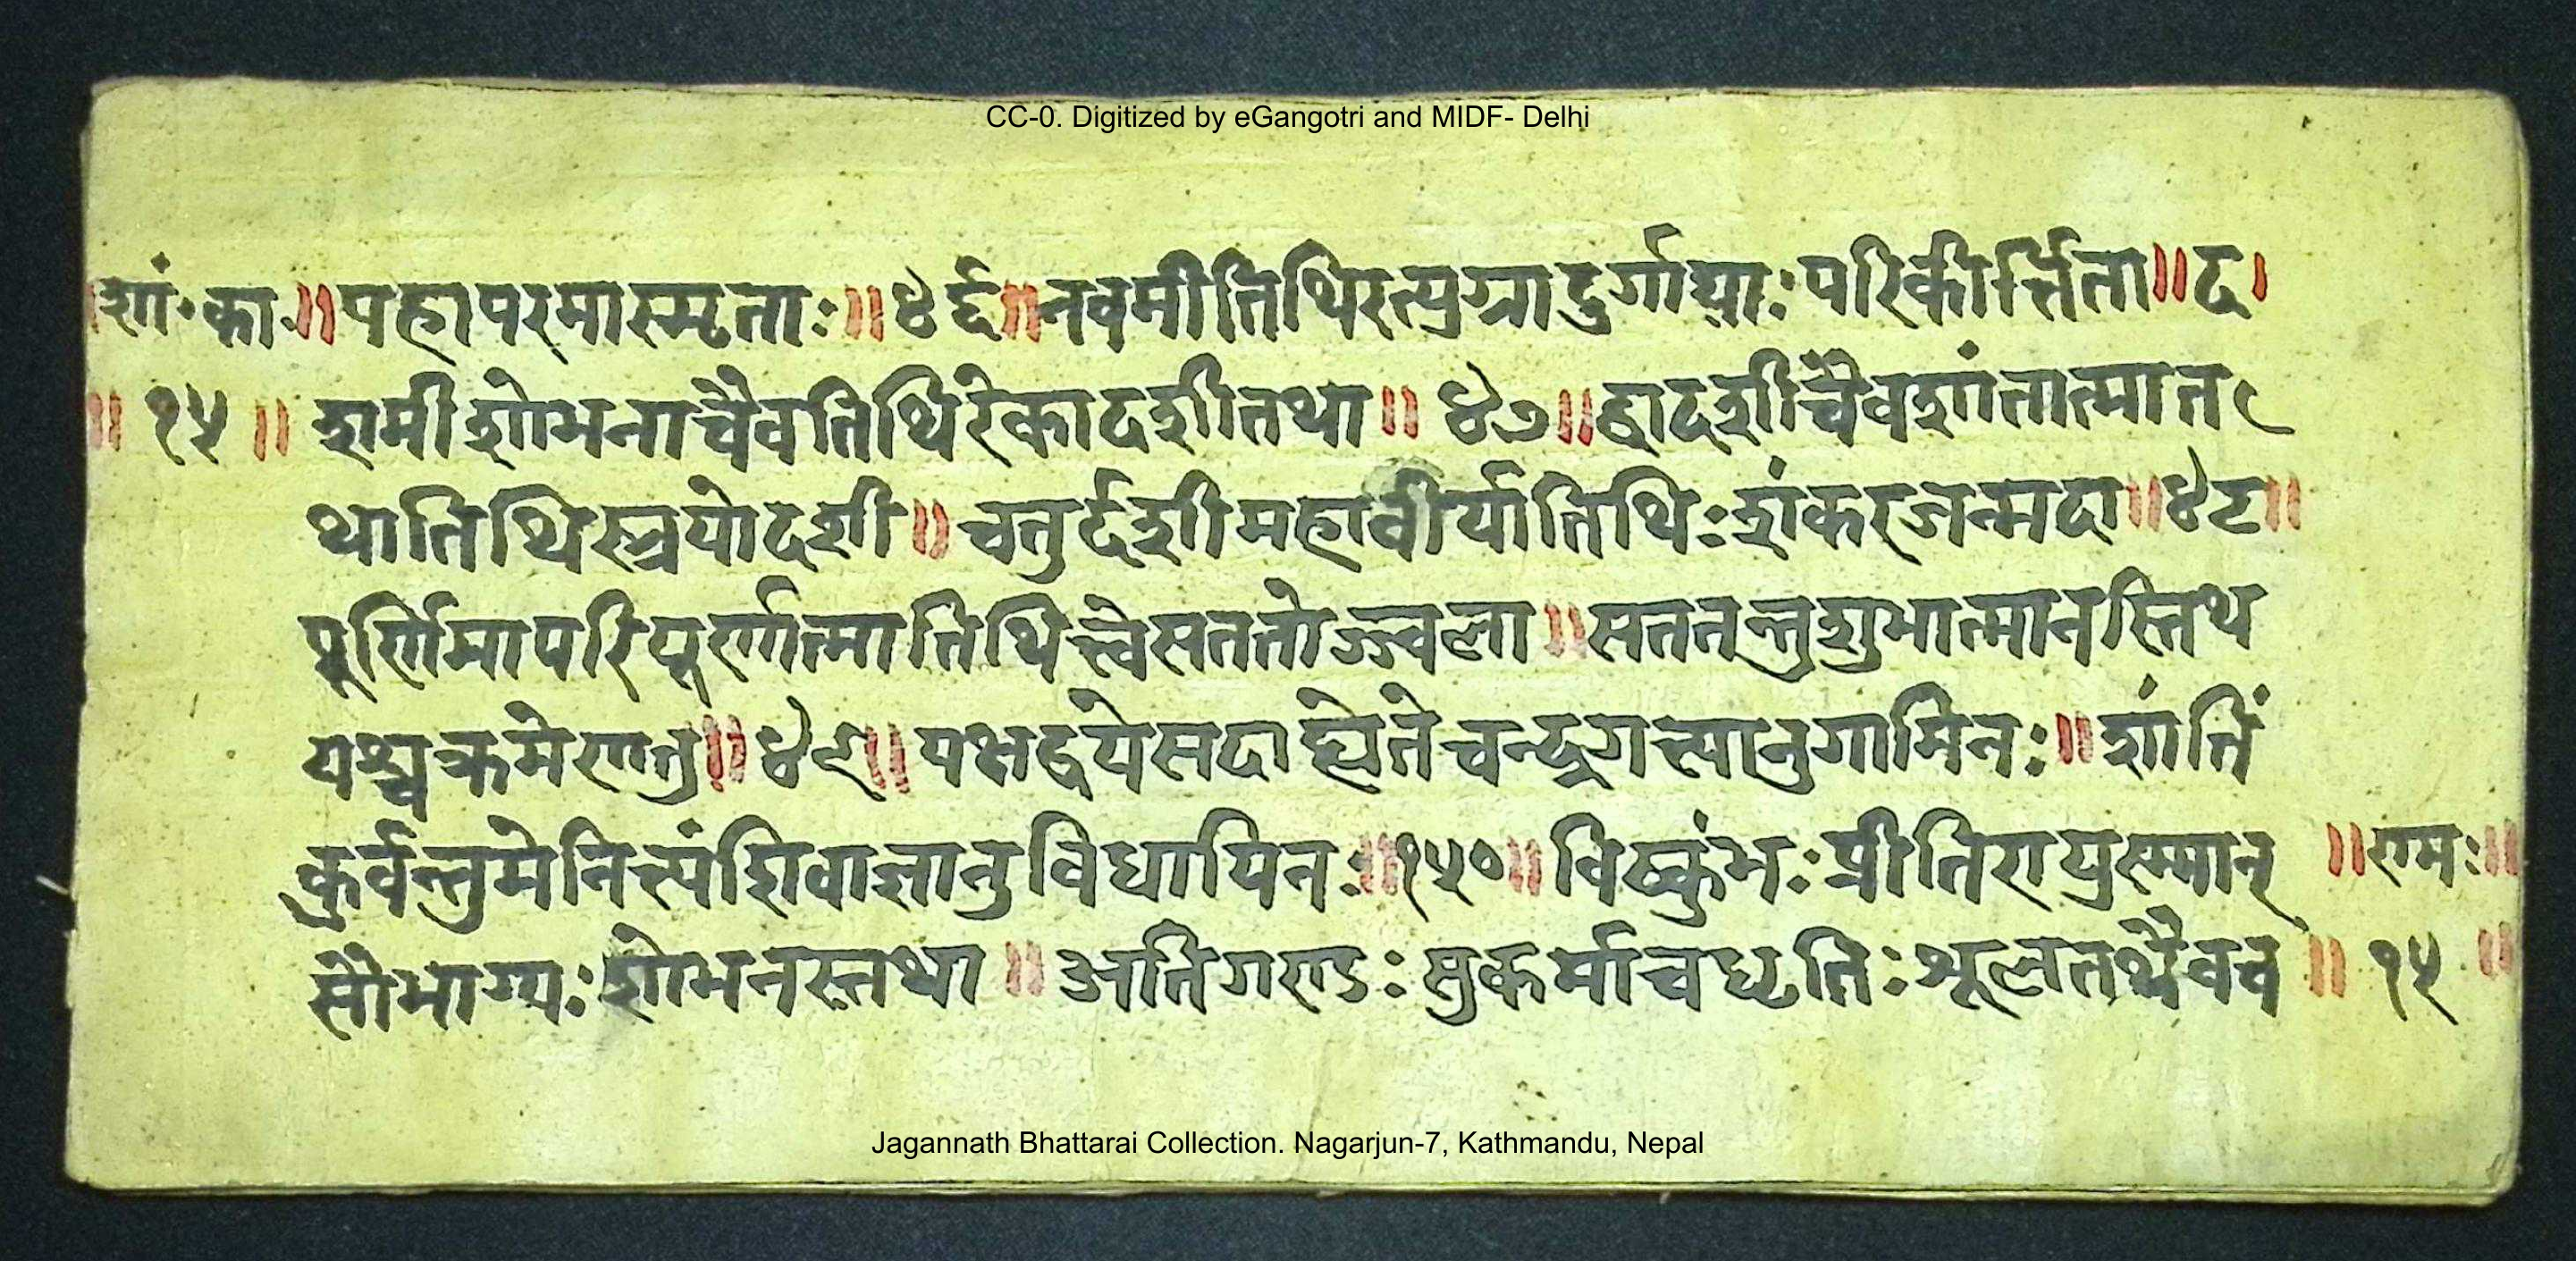 CC-0. Digitized by eGangotri and MIDF- Delhi
।शां॰का॰॥ पहापरमास्मृताः॥४६॥नवमीतिथिरत्युग्रादुर्गायाःपरिकीर्त्तिता॥द।
॥१५॥ शमीशोभनाचैवतिथिरेकादशीतथा॥४७॥द्वादशीचैवशांतात्मात
थातिथिस्त्रयोदशी॥चतुर्दशीमहावीर्यातिथिःशंकरजन्मदा॥४८॥
पूर्णिमापरिपूर्णात्मातिथित्त्वैसततोज्ज्वला॥सततन्तुशुभात्मानस्तिथ
यश्चक्रमेणतु॥४९॥पक्षद्वयेसदाह्येतेचन्द्रगत्यानुगामिनः॥शांतिं
कुर्वन्तुमेनित्यंशिवाज्ञानुविधायिनः॥१५०॥विष्कुंभःप्रीतिरायुस्मान् ॥रामः॥
सौभाग्यःशोभनस्तथा॥अतिगण्डःसुकर्माचधृतिःश्रूलतथैवच ॥१५॥
Jagannath Bhattarai Collection. Nagarjun-7, Kathmandu, Nepal